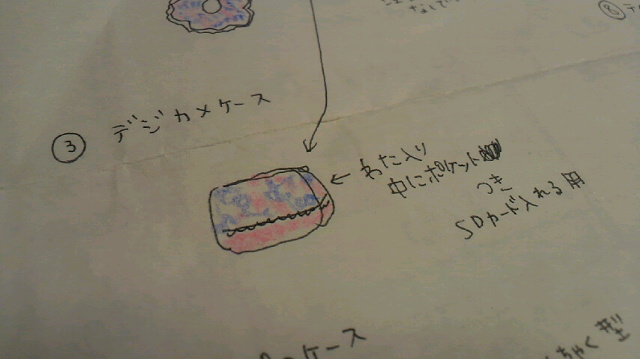 ③ デジカメケース
わた入り
中にポケット
つき
SDカード入れる用
ケース
型